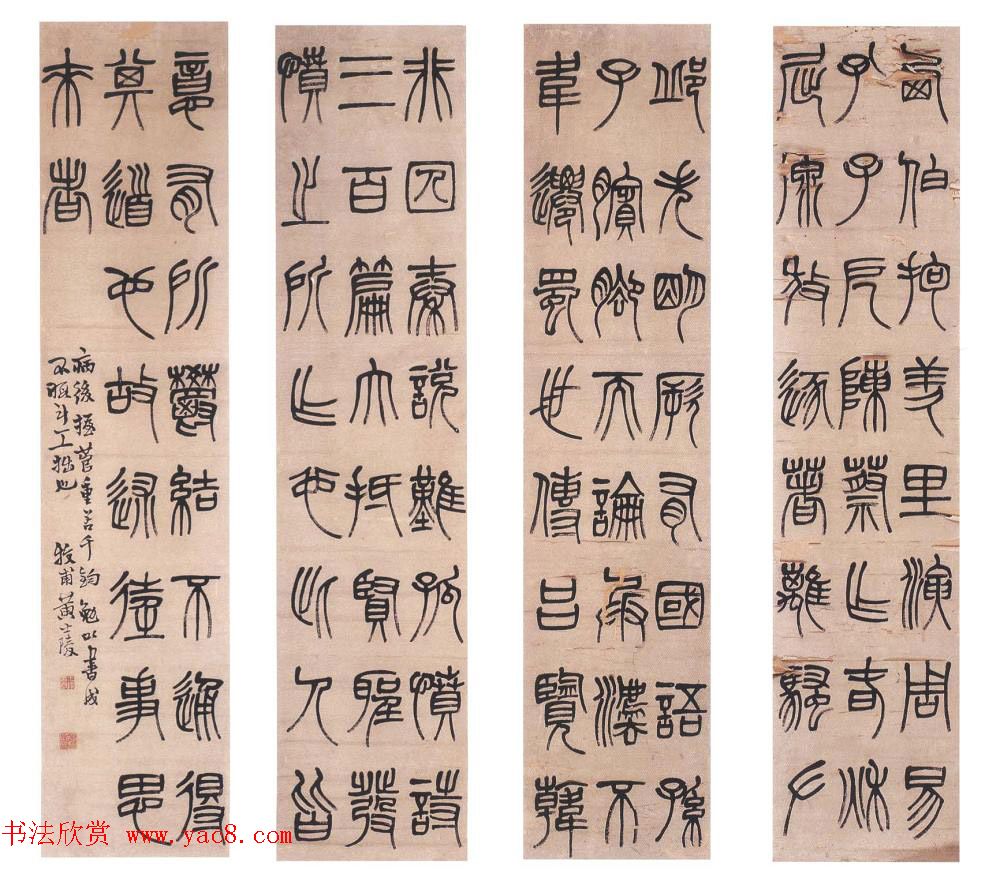 西伯拘羑里演周易
孔子戹陳蔡作春秋
屈原放逐著離騷左
邱失明厥有國語孫
子臏腳而論兵法不
韋遷蜀世傳呂覽韓
非囚秦說難孤憤詩
三百篇大抵賢聖發
憤之所作也此人皆
意有所鬱結不通得
其道也故述往事思
來者
病後握管重若千鈞勉以書成
不暇計工拙也 牧甫黃士陵
书法欣赏 www.yac8.com